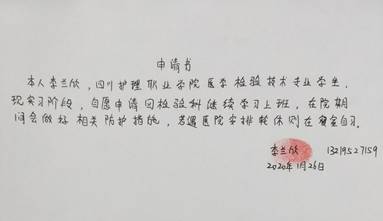 申请书
本人李兰欣，四川护理职业学院医学检验技术专业学生，
现实习阶段，自愿申请回检验科继续学习上班，在院期
间会做好相关防护措施，若遇医院安排轮休则在寝室自习。
李兰欣 13219527159
2020年1月26日